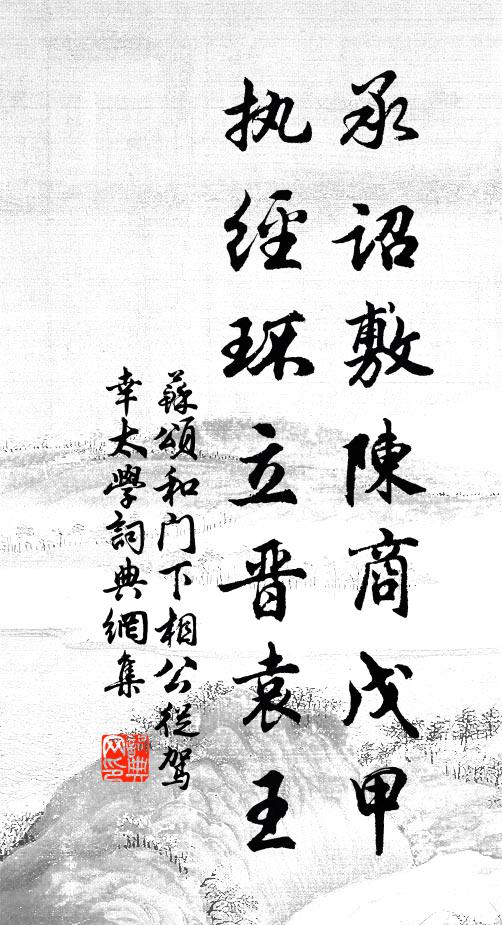 承詔敷陳商戊甲
执經环立晋袁王
蘇頌和门下相公従駕
幸太學詞典網集